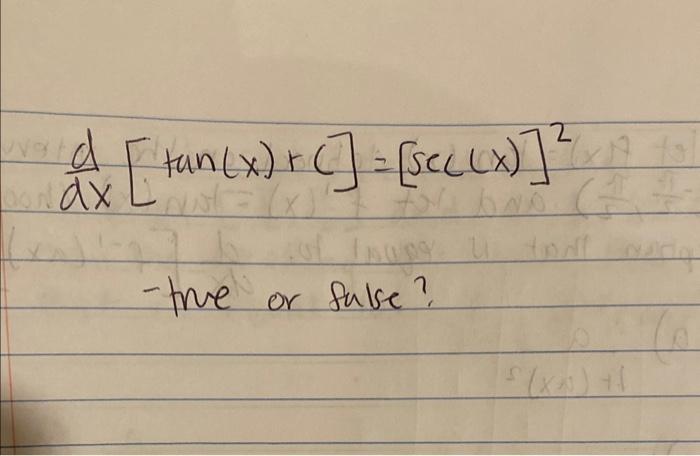 d/dx [tan(x) + C] = [sec(x)]²
- true or false?